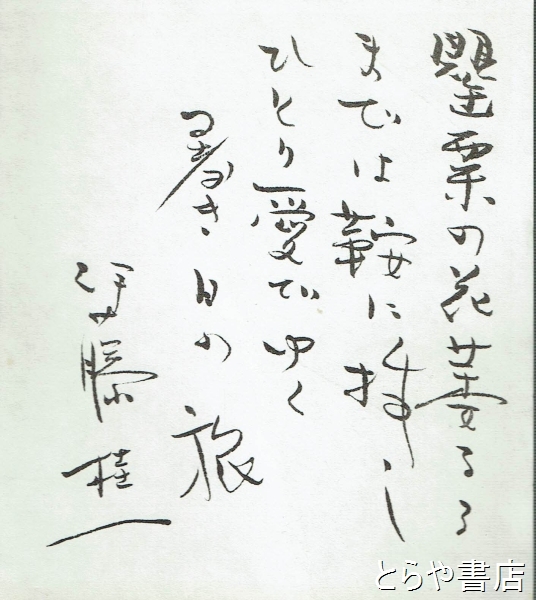 罌粟の花萎るゝ
までは鞍に挿し
ひとり愛でゆく
寒き日の旅
伊藤桂一
とらや書店